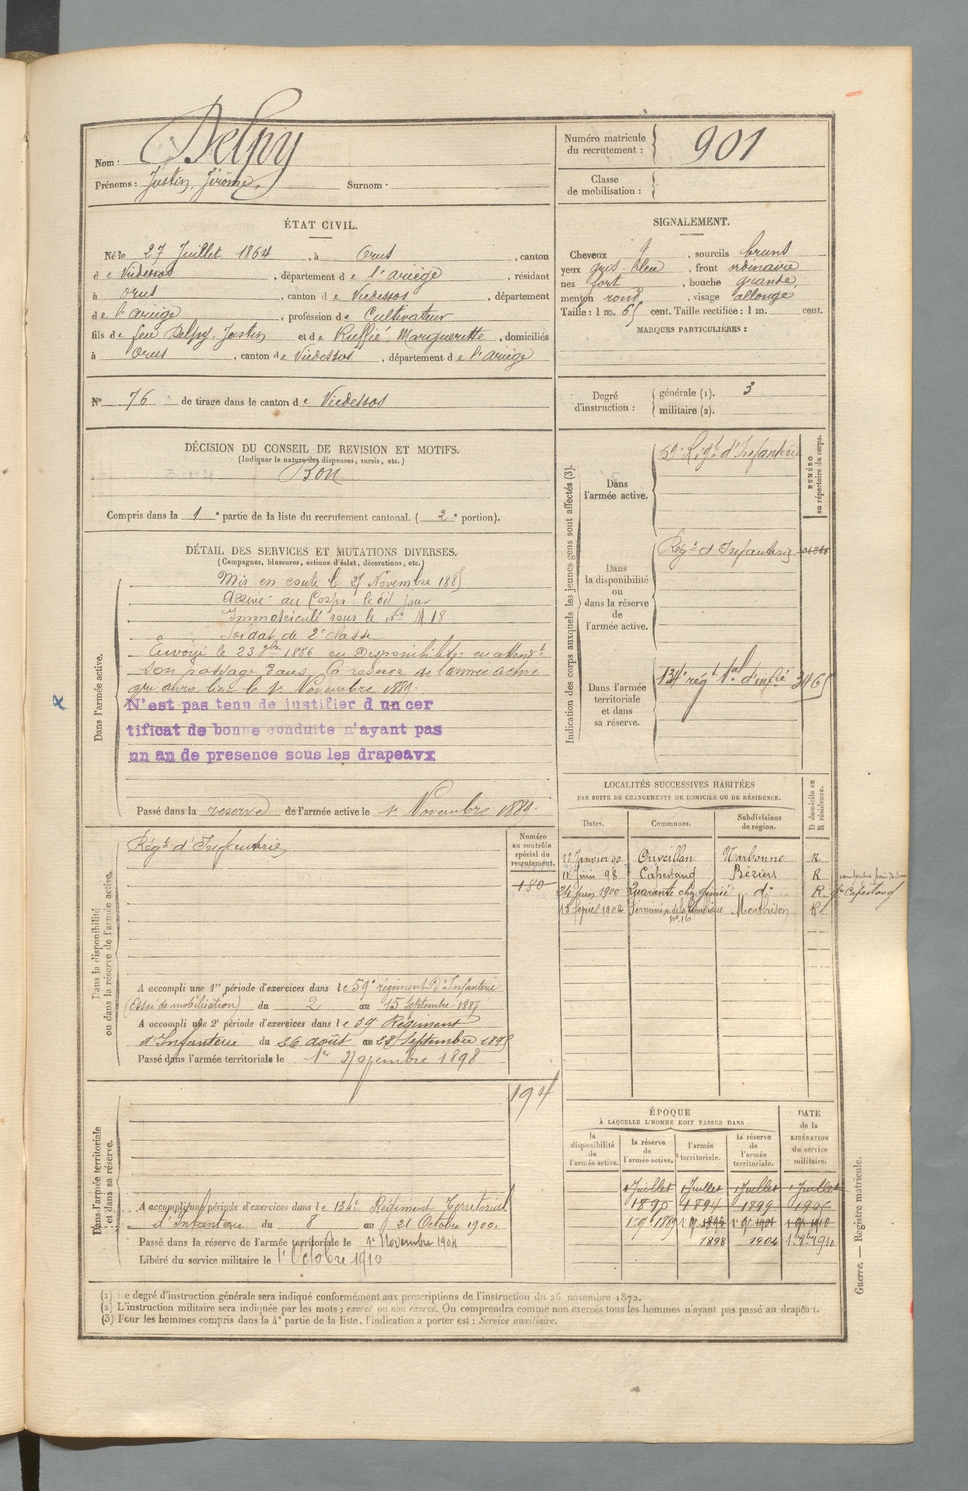 Nom : Delpy
Prénoms : Justin, Jérôme, Surnom :
Numéro matricule du recrutement : 901
Classe de mobilisation :
ÉTAT CIVIL.
Né le 27 Juillet 1864, à Orus, canton
de Vicdessos, département de l'ariège, résidant
à Orus, canton de Vicdessos, département
de l'ariège, profession de Cultivateur
fils de feu Delpy, Justin et de Ruffié, Marguerite, domiciliés
à Orus, canton de Vicdessos, département de l'ariège
SIGNALEMENT.
Cheveux, sourcils bruns
yeux gris bleu, front ordinaire
nez fort, bouche grande,
menton rond, visage allongé
Taille : 1 m. 65 cent. Taille rectifiée : 1 m. cent.
MARQUES PARTICULIÈRES :
N° 76 de tirage dans le canton de Vicdessos
Degré d'instruction : générale (1). 3
militaire (2).
DÉCISION DU CONSEIL DE REVISION ET MOTIFS.
(Indiquer la nature des dispenses, sursis, etc.)
Bon
Compris dans la 1e partie de la liste du recrutement cantonal. (2e portion).
DÉTAIL DES SERVICES ET MUTATIONS DIVERSES.
(Campagnes, blessures, actions d'éclat, décorations, etc.)
Dans l'armée active.
Mis en route le 27 Novembre 1885
Arrivé au Corps le dit jour
Immatriculé sous le N°
Soldat de 2e classe
Envoyé le 23 7bre 1886 en Disponibilité en attendt
son passage dans la réserve de l'armée active
qui aura lieu le 1er Novembre 1889.
N'est pas tenu de justifier d un cer
tificat de bonne conduite n'ayant pas
un an de presence sous les drapeavx
Passé dans la réserve de l'armée active le 1er Novembre 1889.
Indication des corps auxquels les jeunes gens sont affectés (3).
NUMÉRO au répertoire du corps.
Dans l'armée active.
59e Régt d'Infanterie
Dans la disponibilité ou dans la réserve de l'armée active.
Régt d'Infanterie
Dans l'armée territoriale et dans sa réserve.
134e régt tal d'infie 3465
LOCALITÉS SUCCESSIVES HABITÉES
PAR SUITE DE CHANGEMENTS DE DOMICILE OU DE RÉSIDENCE.
Dates. Communes. Subdivisions de région. D domicile ou R résidence.
11 Janvier 90 Ouveillan Narbonne R
11 Juin 98 Capestang Béziers R
24 Juin 1900 Quarante d° R
1902 Firminy Montbrison R
Dans la disponibilité ou dans la réserve de l'armée active.
Régt d'Infanterie
Numéro au contrôle spécial du recrutement.
180
A accompli une 1re période d'exercices dans le 59e régiment d'Infanterie
(Essai de mobilisation) du 2 au 15 Septembre 1887
A accompli une 2e période d'exercices dans le 59e Régiment
d'Infanterie du 26 août au 22 Septembre 189
Passé dans l'armée territoriale le 1er Novembre 1898
Dans l'armée territoriale et dans sa réserve.
194
A accompli une période d'exercices dans le 134e Régiment Territorial
d'Infanterie du 8 au 21 Octobre 1900.
Passé dans la réserve de l'armée territoriale le 1er Novembre 1904
Libéré du service militaire le 1er Octobre 1910
ÉPOQUE
À LAQUELLE L'HOMME DOIT PASSER DANS
DATE de la LIBÉRATION du service militaire.
la disponibilité de l'armée active. la réserve de l'armée active. l'armée territoriale. la réserve de l'armée territoriale.
1 Juillet 1 Juillet 1 Juillet 1 Juillet
1890 1894 1899 1905
1889
1898 1904 1910
(1) Le degré d'instruction générale sera indiqué conformément aux prescriptions de l'instruction du 26 novembre 1872.
(2) L'instruction militaire sera indiquée par les mots : exercé ou non exercé. On comprendra comme non exercés tous les hommes n'ayant pas passé au drapeau.
(3) Pour les hommes compris dans la 4e partie de la liste, l'indication à porter est : Service auxiliaire.
Guerre. — Registre matricule.